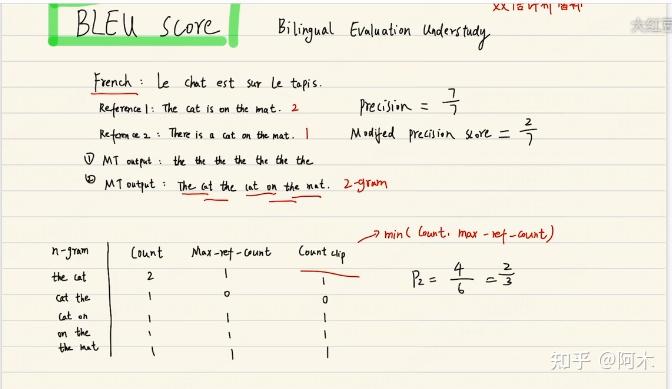 BLEU score
Bilingual Evaluation Understudy
French: Le chat est sur le tapis.
Reference 1: The cat is on the mat. 2
Reference 2: There is a cat on the mat. 1
① MT output: the the the the the the the
② MT output: The cat the cat on the mat. 2-gram
Precision = 7/7
Modified precision score = 2/7
n-gram Count Max-ref-count Count clip → min(count, max-ref-count)
the cat 2 1 1
cat the 1 0 0
cat on 1 1 1
on the 1 1 1
the mat 1 1 1
P2 = 4/6 = 2/3
知乎 @阿木